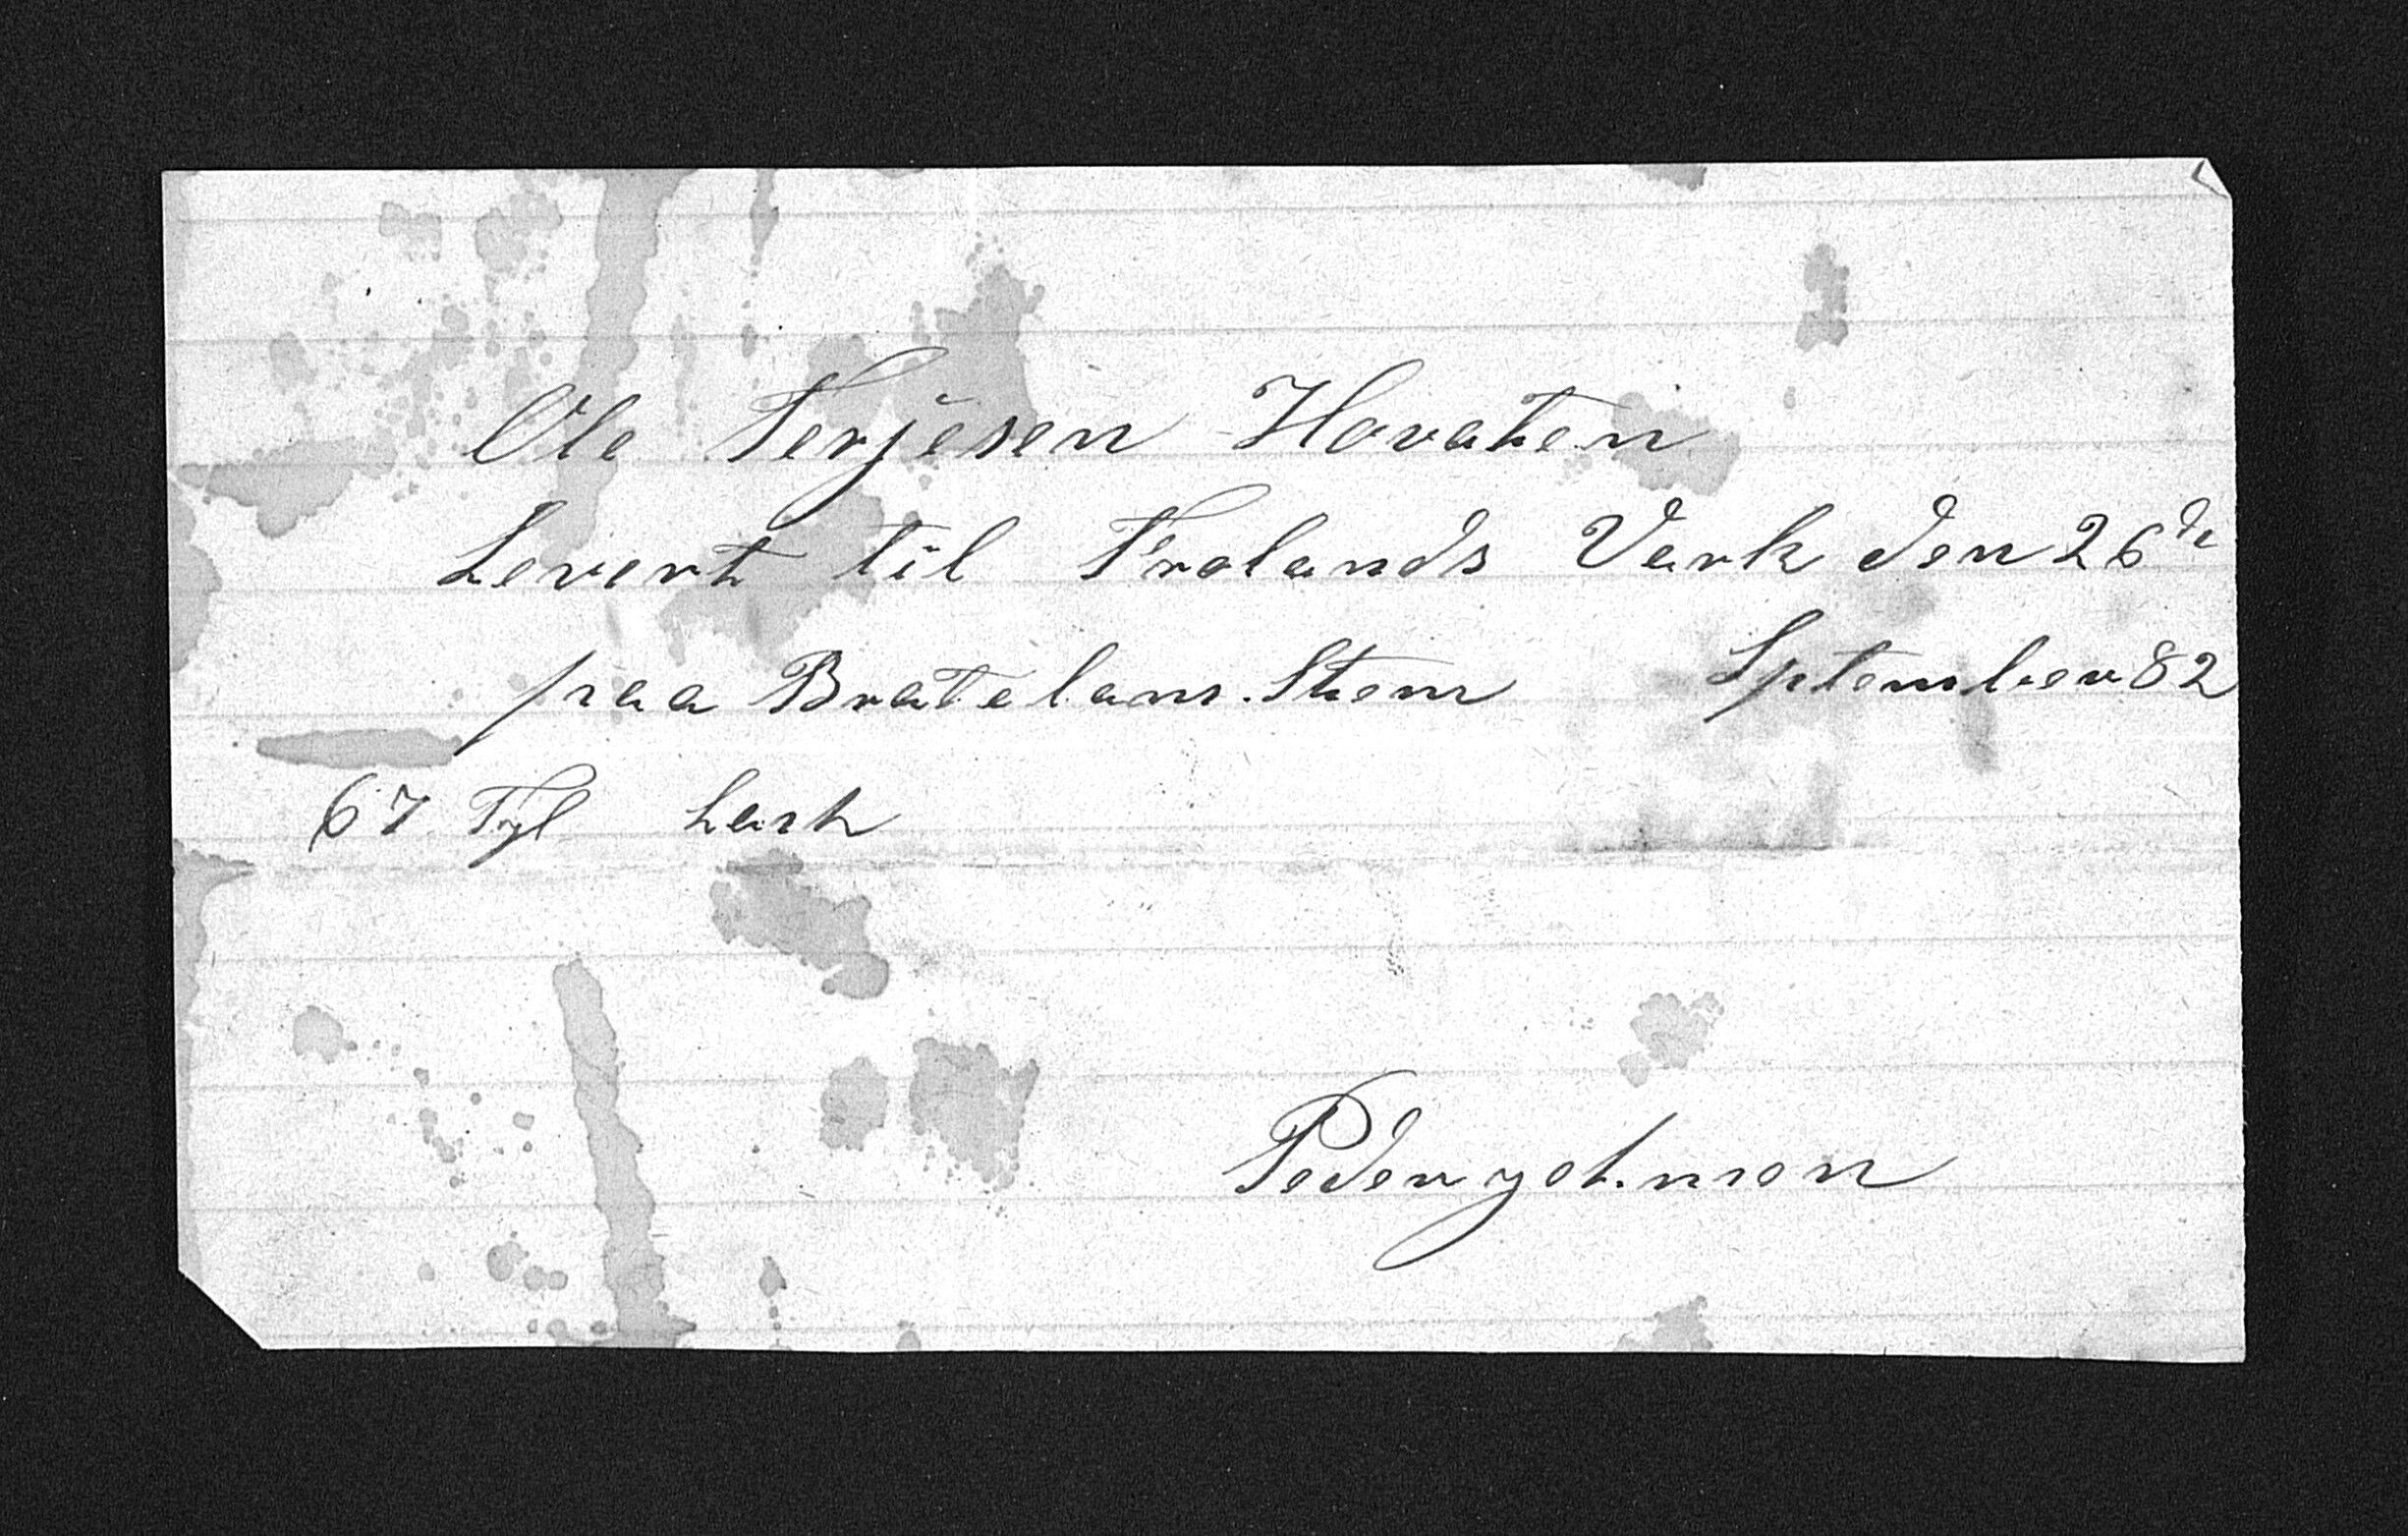 Ole Terjesen Hovaten
Levert til Frolands Værk den 26de
paa Bratelans. Stem Sptember 82
67 Tyl Lask
Peder yohnson